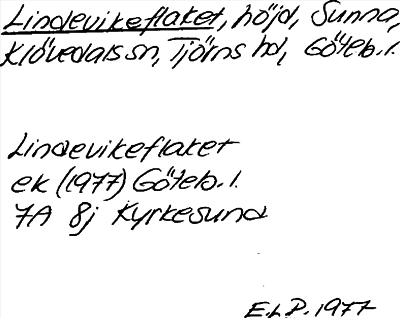 Lindevikeflaket, höjd, Sunna,
Klövedals sn, Tjörns hd, Göteb. l.
Lindevikeflaket
ek (1977) Göteb. l.
7A 8j Kyrkesund
E.L.P. 1977